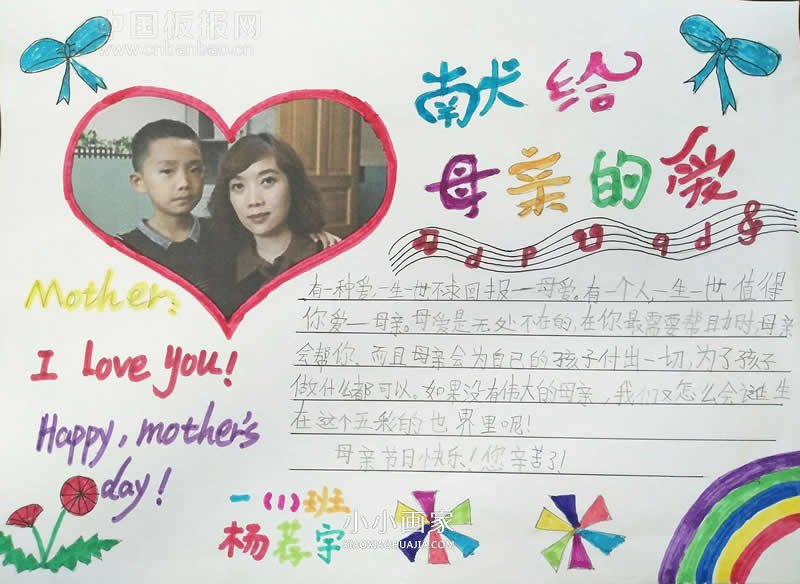 中国板报网
www.cnbanbao.cn
献给
母亲的爱
Mother:
I Love You!
Happy, mother's
day!
有一种爱一生一世不求回报——母爱。有一个人,一生一世值得
你爱——母亲。母爱是无处不在的,在你最需要帮助时,母亲
会帮你。而且母亲会为自己的孩子付出一切,为了孩子
做什么都可以。如果没有伟大的母亲,我们又怎么会诞生
在这个五彩的世界里呢!
母亲节日快乐!您辛苦了!
一(1)班
杨荐宇
小小画家
XIAOXIAOHUAJIA.COM